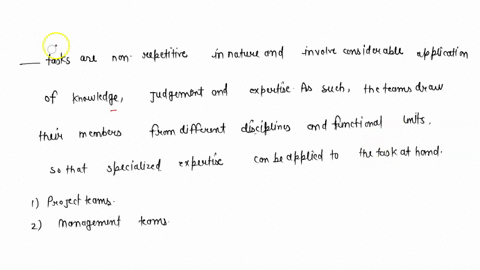 ___ tasks are non-repetitive in nature and involve considerable application
of knowledge, judgement and expertise. As such, the teams draw
their members from different disciplines and functional units,
so that specialized expertise can be applied to the task at hand.
1) Project teams.
2) Management teams.